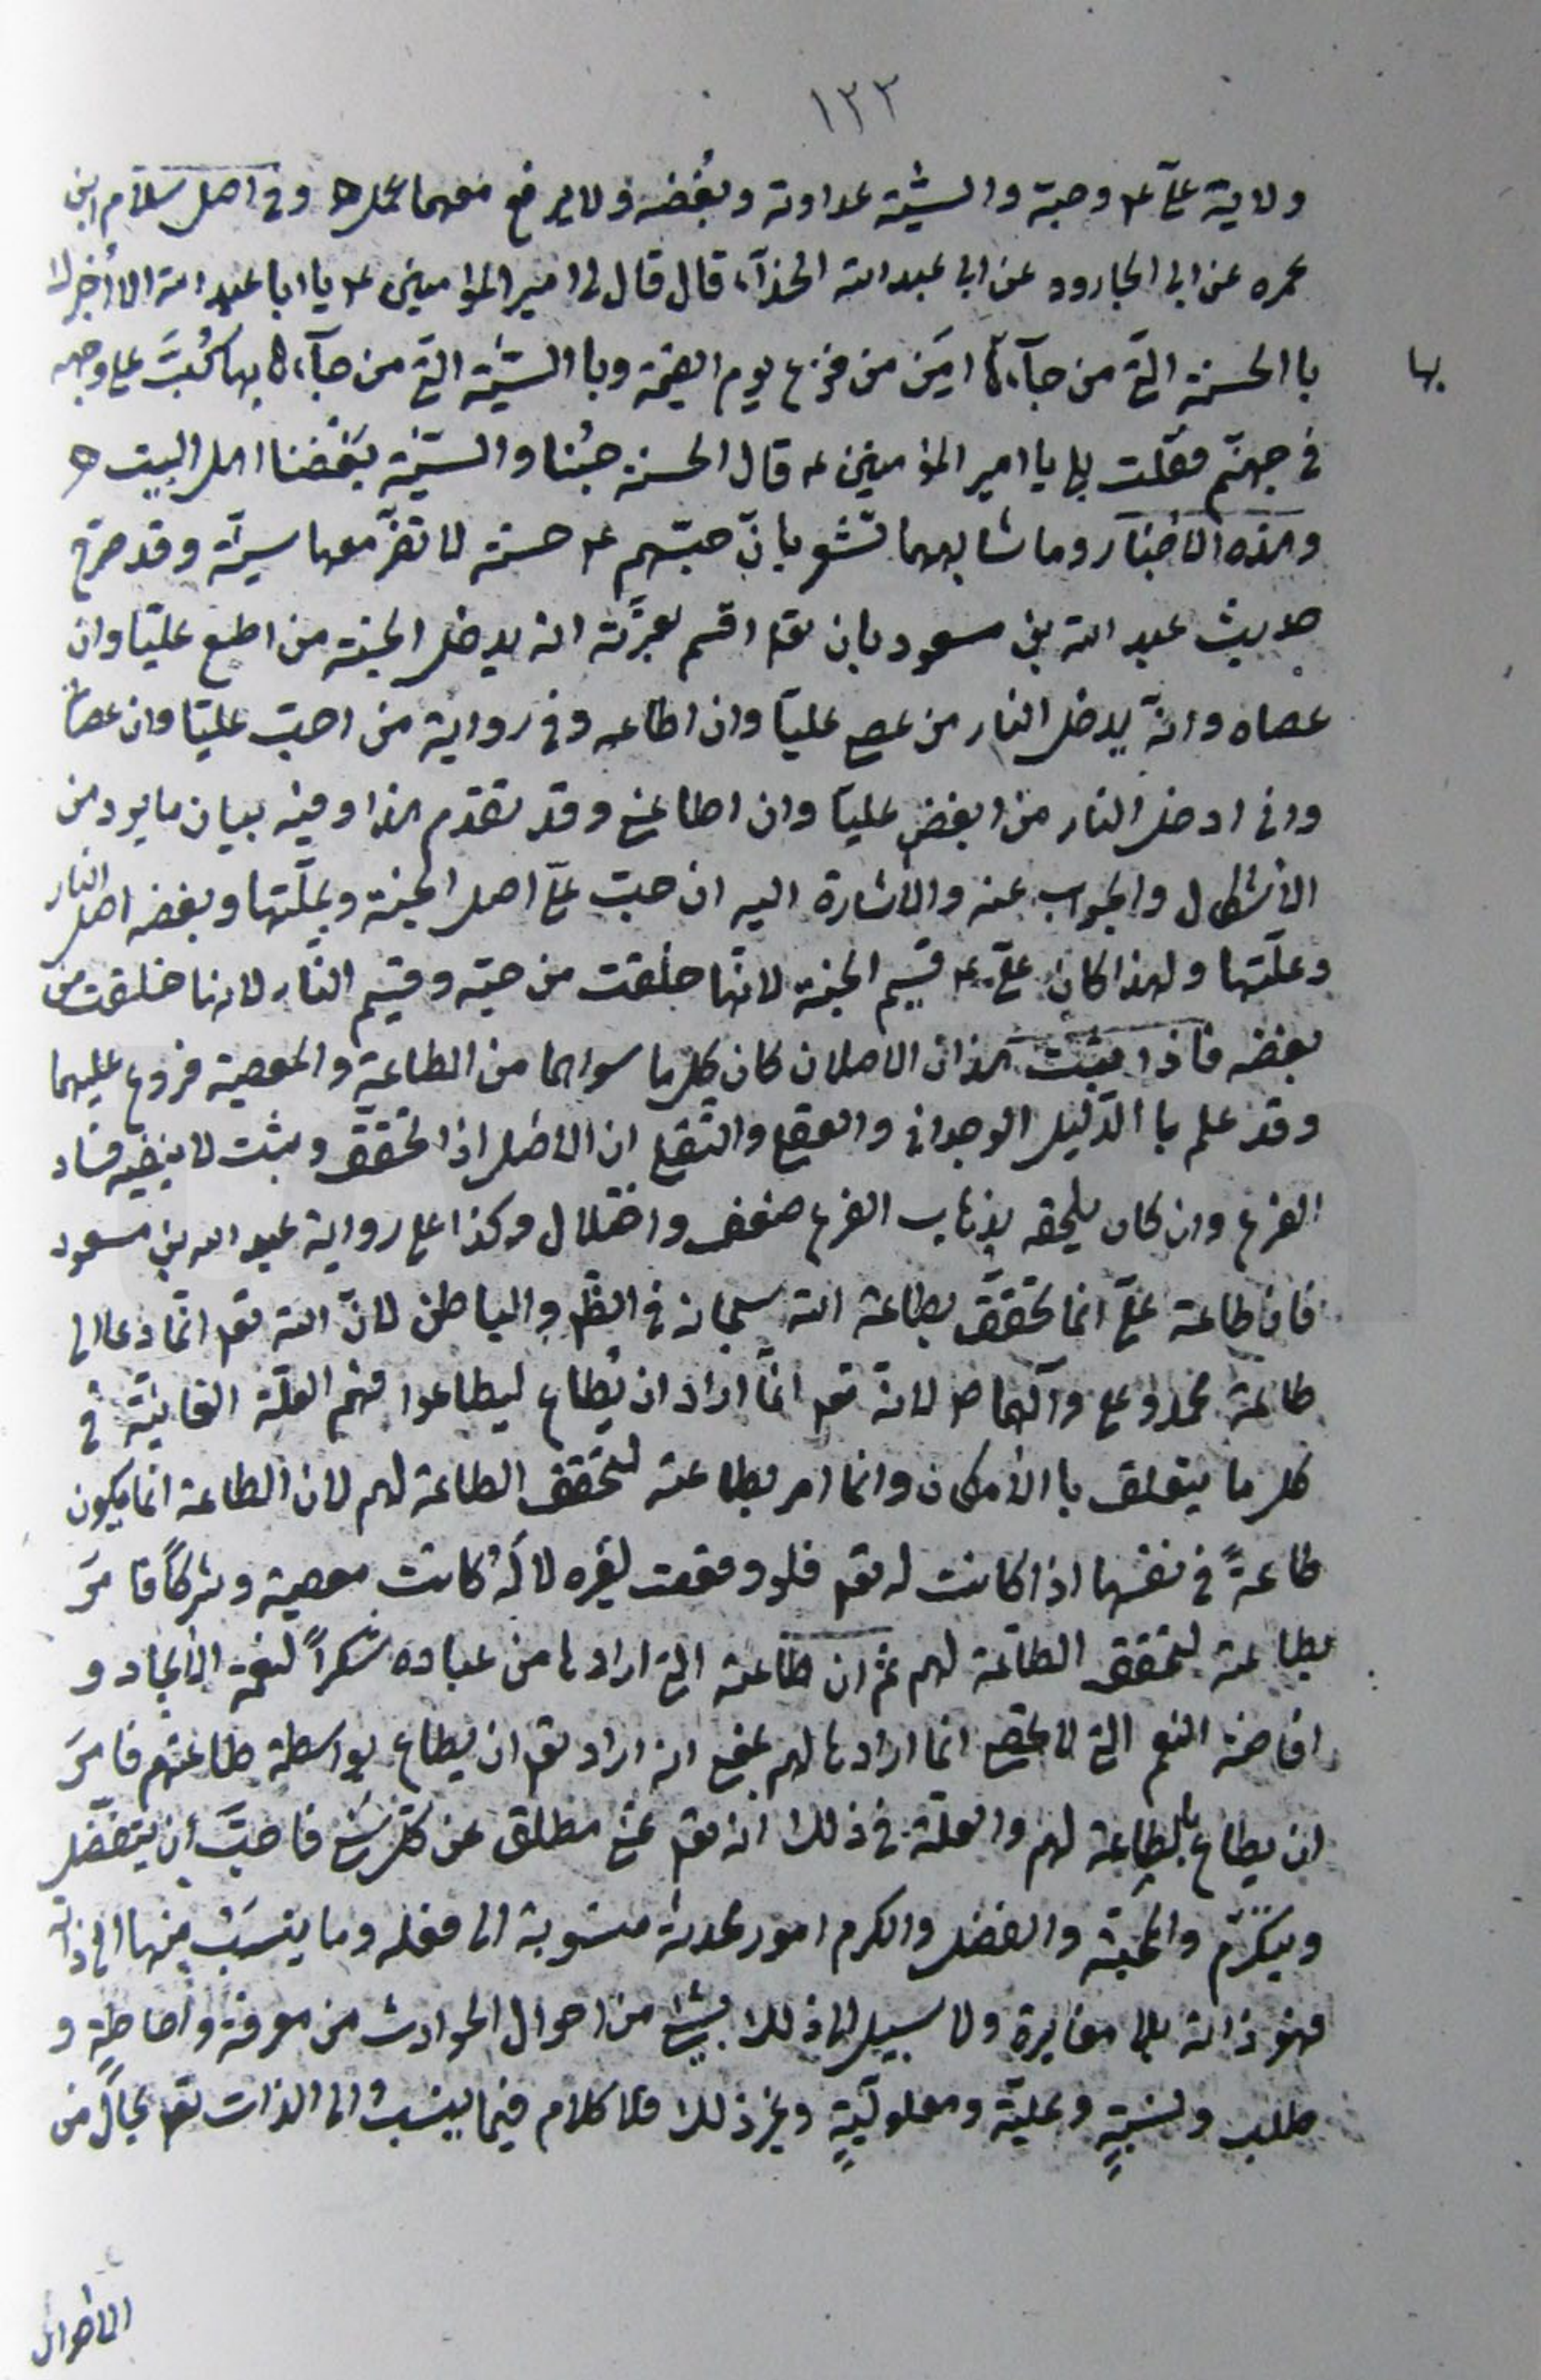 ١٣٣
ولاية علي ع وحبه والسيئة عداوته وبغضه ولا يرفع معهما عمل ه وفي اصل سلام ابن
عمره عن ابي الجارود عن ابي عبد الله الحذآء قال قال لي امير المؤمنين ع يا ابا عبد الله الا أخبرك
با الحسنة التي من جآء بها امن من فزع يوم القيمة وبا السيئة التي من جآء بها كبت على وجهه
في جهنم فقلت بلى يا امير المؤمنين ع قال الحسنة حبنا والسيئة بغضنا اهل البيت ه
وهذه الاخبار وما شابهها تشعر بان حبهم ع حسنة لا تضر معها سيئة وقد صرح
حديث عبد الله بن مسعود بان تع اقسم بعزته انه يدخل الجنة من اطاع عليا وان
عصاه وانه يدخل النار من عصى عليا وان اطاعه وفي رواية من احب عليا وان عصاني
واني ادخل النار من ابغض عليا وان اطاعني وقد تقدم هذا وفيه بيان ما يرد من
الأشكال والجواب عنه والأشارة اليه ان حب علي اصل الجنة وعلتها وبغضه اصل النار
وعلتها ولهذا كان علي ع قسيم الجنة لانها خلقت من حبه وقسيم النار لانها خلقت من
بغضه فاذا ثبت هذان الاصلان كان كل ما سواهما من الطاعة والمعصية فروع عليهما
وقد علم با الدليل الوجداني والعقلي والنقلي ان الاصل اذا تحقق وثبت لا ينفيه فساد
الفرع وان كان يلحقه بذهاب الفرع ضعف واختلال وكذا على رواية عبد الله بن مسعود
فان طاعة علي انما تحقق بطاعة الله سبحانه في الظ والباطن لان الله تع انما دعا الى
طاعة محمد وعلي وآلهما ص لانه تع انما اراد ان يطاع ليطاعوا فهم العلة الغائية في
كل ما يتعلق با الأمكان وانما امر بطاعته لتحقق الطاعة لهم لان الطاعة انما يكون
طاعةً في نفسها اذا كانت له تع فلو وقعت لغيره لا له كانت معصية وشركاً فامر
بطاعته لتحقق الطاعة لهم ثم ان طاعته التي ارادها من عباده شكراً لنعمة الأيجاد و
افاضة النعم التي لا تحصى انما ارادها لهم بمعنى انه اراد تع ان يطاع بواسطة طاعتهم فامر
ان يطاع بالطاعة لهم والعلة في ذلك انه تع غني مطلق عن كل شئ فاحب أن يتفضل
ويتكرم والمحبة والفضل والكرم امور محدثة منسوبة الى فعله وما ينسب منها الى ذاته
فهو ذاته بلا مغايرة ولا سبيل الى ذلك بشئ من احوال الحوادث من معرفة واحاطة و
طلب ونسبة وعلية ومعلولية وغير ذلك فلا كلام فيما ينسب الى الذات تع بحال من
الاحوال